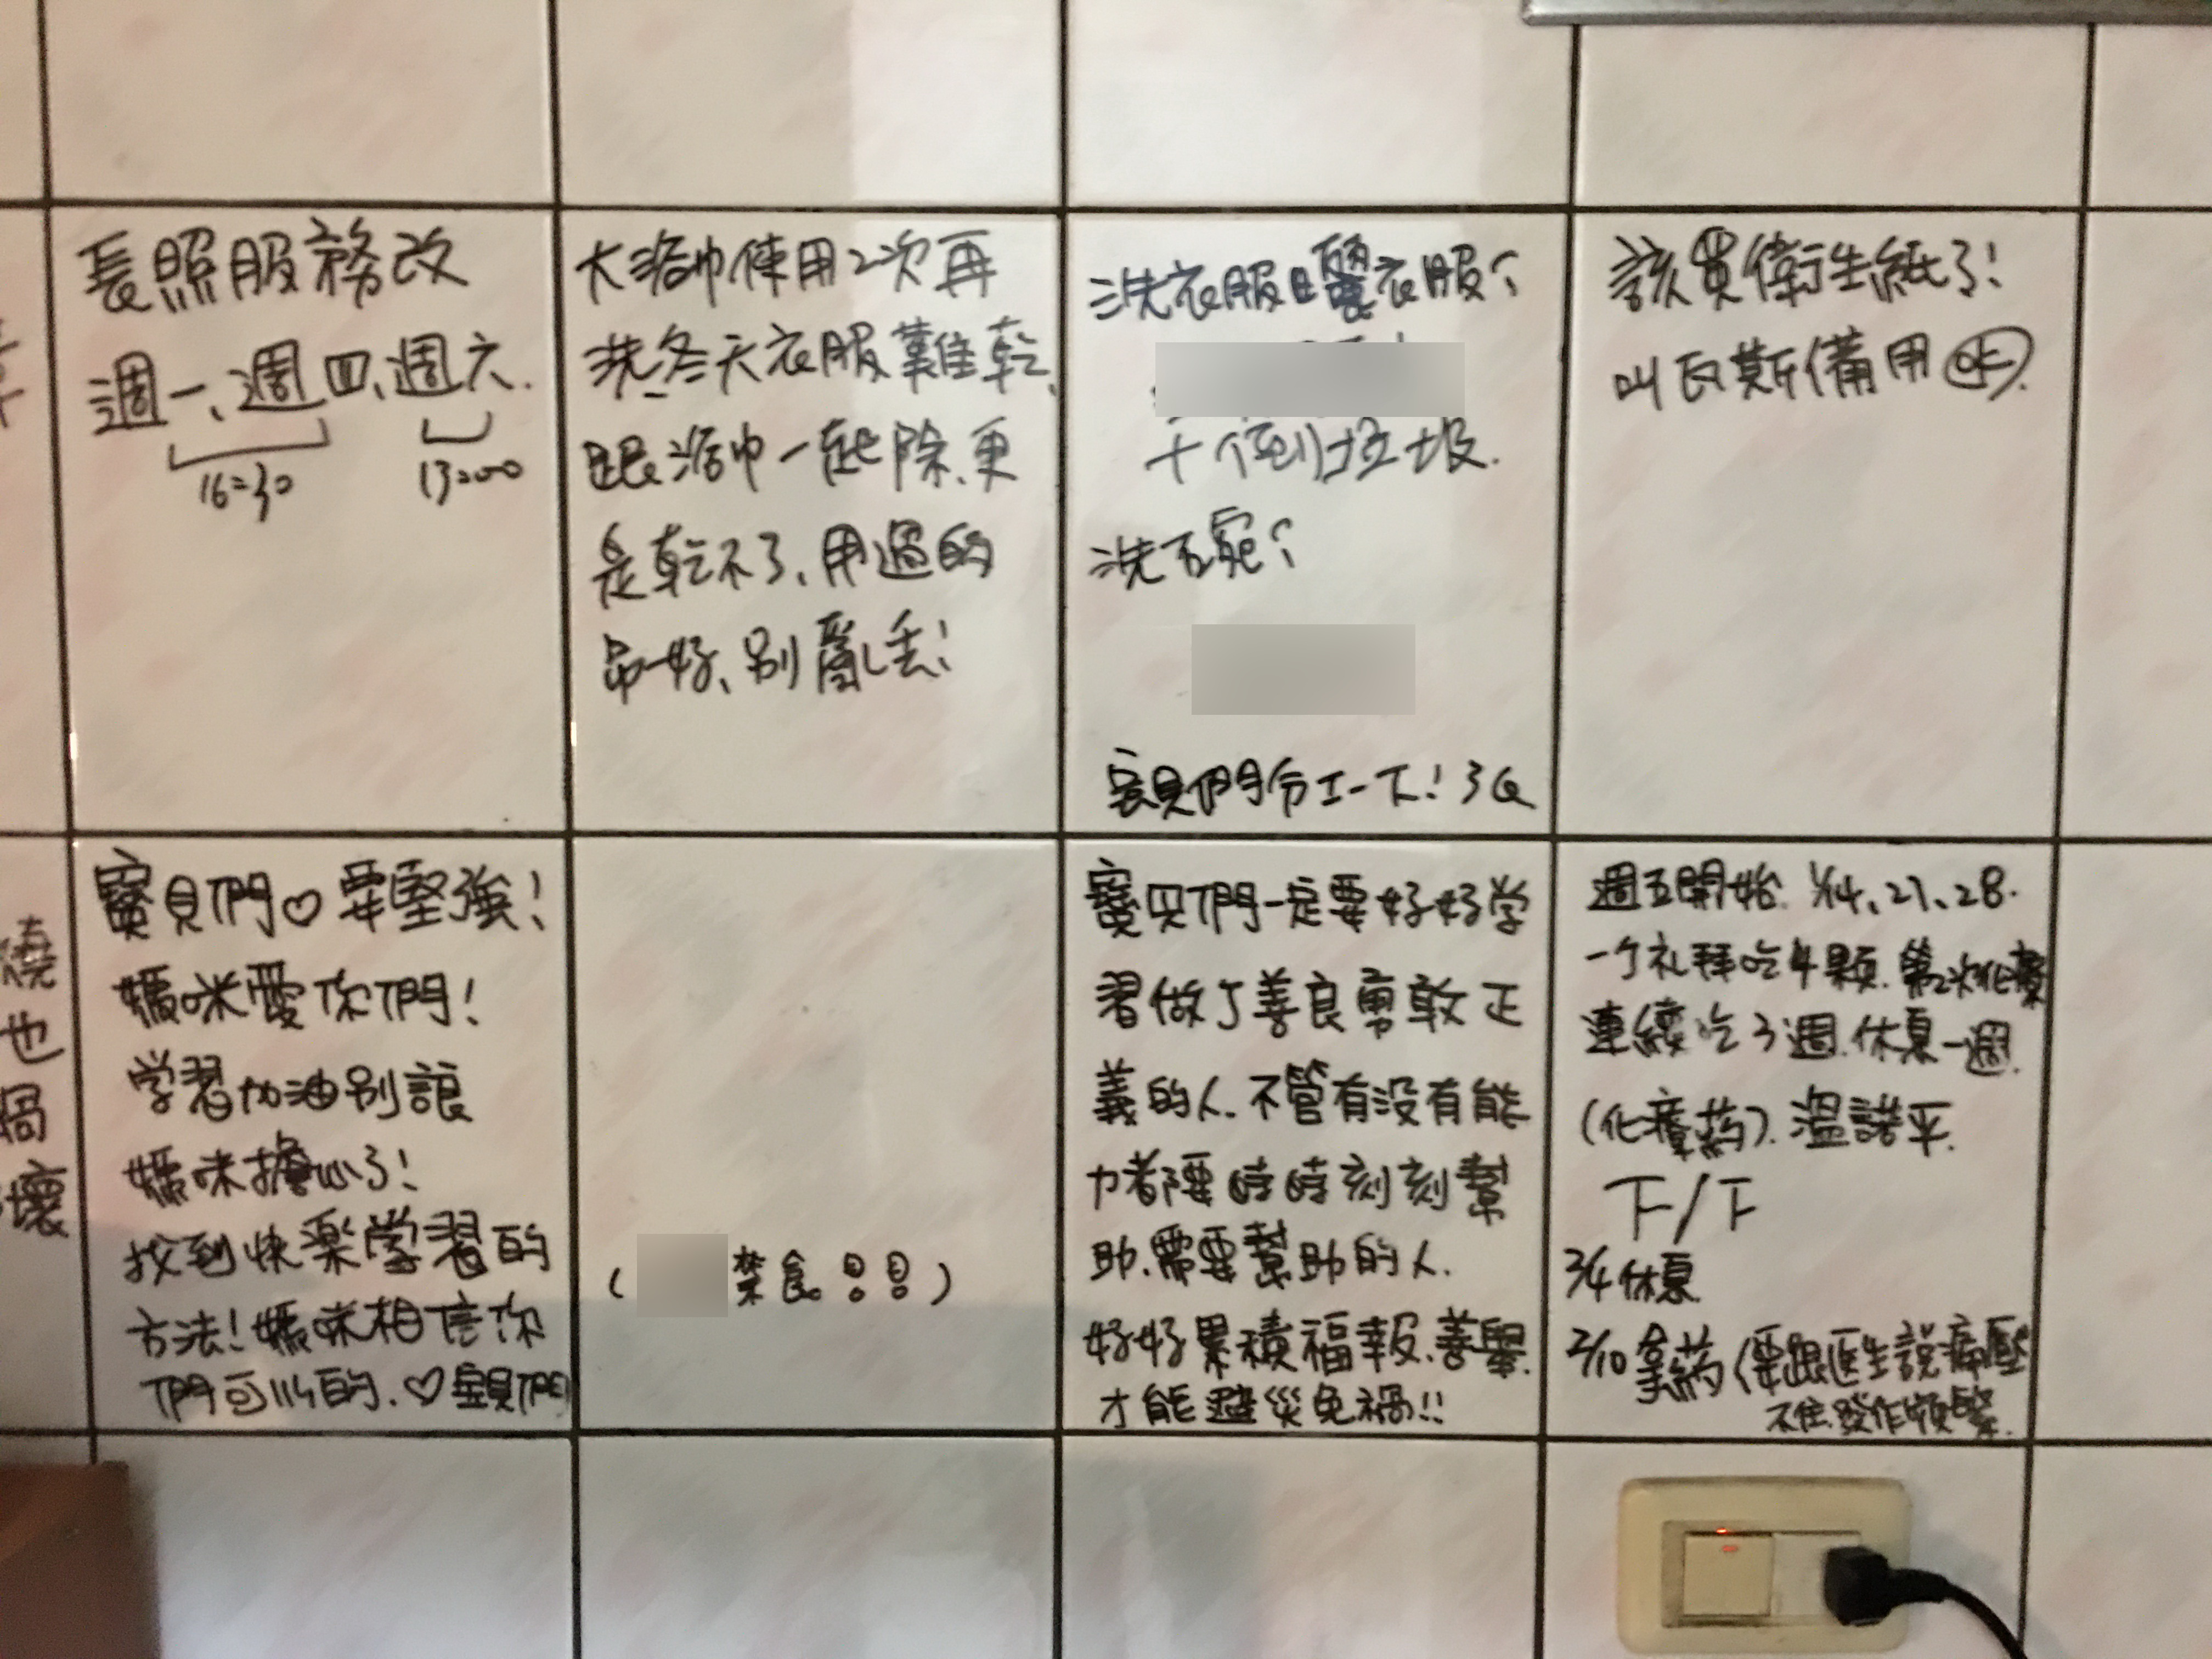 長照服務改
週一、週四、週六.
16:30 13:00
大浴巾使用2次再
洗.冬天衣服難乾、
跟浴巾一起除、更
是乾不了、用過的
吊好、別亂丟!
洗衣服曬衣服?
倒垃圾.
洗碗?
寶貝們分工一下! 3Q
該買衛生紙了!
叫瓦斯備用 OK.
寶貝們♡要堅強!
媽咪愛你們!
学習加油別讓
媽咪擔心了!
找到快樂學習的
方法!媽咪相信你
們可以的.♡寶貝們
(禁食。!!)
寶貝們一定要好好学
習做个善良勇敢正
義的人.不管有没有能
力都要時時刻刻幫
助.需要幫助的人.
好好累積福報.善舉.
才能避災免禍!!
週五開始. 1/14、21、28.
一个礼拜吃4顆.第2次化療
連續吃3週.休息一週.
(化療药).溫諾平.
下/下
2/4休息
2/10拿药(要跟医生說痛壓
不住.發作頻繁.
燒
也
鍋
壞